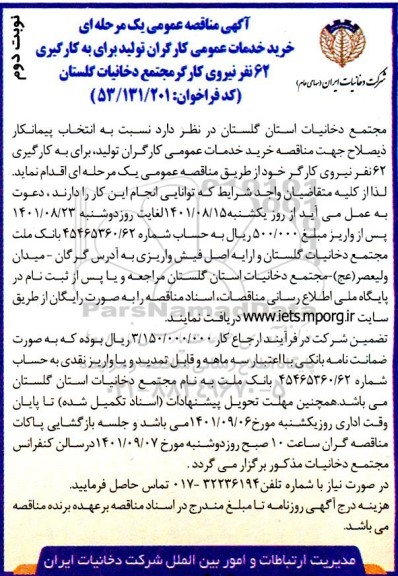 نوبت دوم
آگهی مناقصه عمومی یک مرحله ای
خرید خدمات عمومی کارگران تولید برای به کارگیری
۶۲ نفر نیروی کارگر مجتمع دخانیات گلستان
(کد فراخوان: ۵۳/۱۳۱/۲۰۱)
شرکت دخانیات ایران (سهامی عام)
مجتمع دخانیات استان گلستان در نظر دارد نسبت به انتخاب پیمانکار
ذیصلاح جهت مناقصه خرید خدمات عمومی کارگران تولید، برای به کارگیری
۶۲ نفر نیروی کارگر خود از طریق مناقصه عمومی یک مرحله ای اقدام نماید.
لذا از کلیه متقاضیان واجد شرایط که توانایی انجام این کار را دارند، دعوت
به عمل می آید از روز یکشنبه ۱۴۰۱/۰۸/۱۵ لغایت روز دوشنبه ۱۴۰۱/۰۸/۲۳
پس از واریز مبلغ ۵۰۰/۰۰۰ ریال به حساب شماره ۴۵۴۶۵۳۶۰/۶۲ بانک ملت
مجتمع دخانیات گلستان و ارایه اصل فیش واریزی به آدرس گرگان - میدان
ولیعصر(عج)-مجتمع دخانیات استان گلستان مراجعه و یا پس از ثبت نام در
پایگاه ملی اطلاع رسانی مناقصات، اسناد مناقصه را به صورت رایگان از طریق
سایت www.iets.mporg.ir دریافت نمایند.
تضمین شرکت در فرآیند ارجاع کار ۳/۱۵۰/۰۰۰/۰۰۰ ریال بوده که به صورت
ضمانت نامه بانکی با اعتبار سه ماهه و قابل تمدید و یا واریز نقدی به حساب
شماره ۴۵۴۶۵۳۶۰/۶۲ بانک ملت به نام مجتمع دخانیات استان گلستان
می باشد. همچنین مهلت تحویل پیشنهادات (اسناد تکمیل شده) تا پایان
وقت اداری روز یکشنبه مورخ ۱۴۰۱/۰۹/۰۶ می باشد و جلسه بازگشایی پاکات
مناقصه گران ساعت ۱۰ صبح روز دوشنبه مورخ ۱۴۰۱/۰۹/۰۷ در سالن کنفرانس
مجتمع دخانیات مذکور برگزار می گردد.
در صورت نیاز با شماره تلفن ۳۲۲۳۶۱۹۴ -۰۱۷ تماس حاصل فرمایید.
هزینه درج آگهی روزنامه تا مبلغ مندرج در اسناد مناقصه بر عهده برنده مناقصه
می باشد.
مدیریت ارتباطات و امور بین الملل شرکت دخانیات ایران